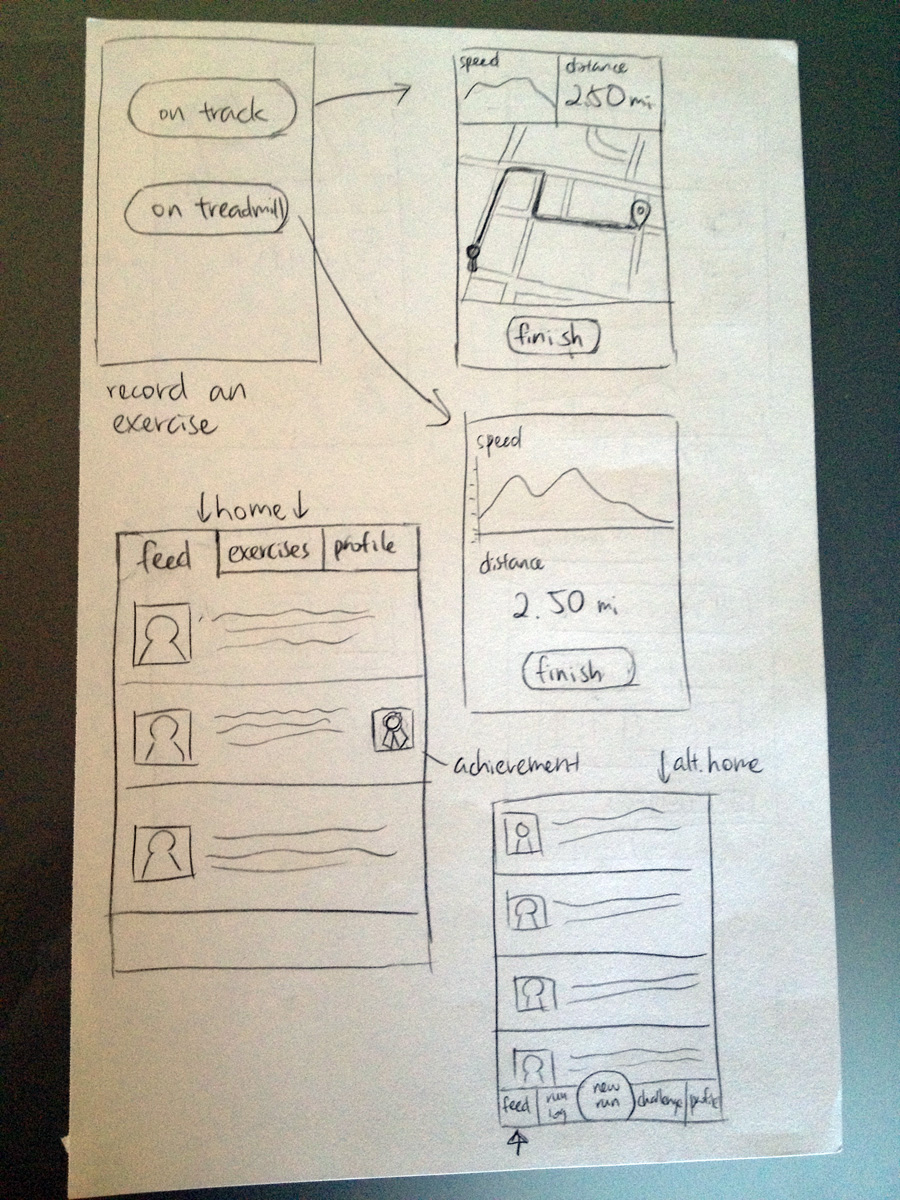 on track
on treadmill
record an
exercise
speed
distance
2.50 mi.
finish
speed
distance
2.50 mi
finish
↓home↓
feed
exercises
profile
achievement
↓alt. home
feed
run
log
new
run
challenge
profile